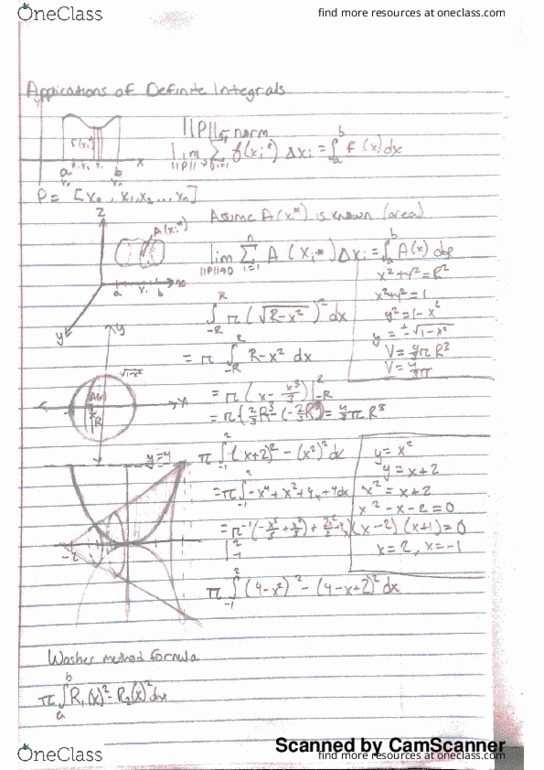 OneClass
find more resources at oneclass.com
Applications of Definite Integrals
||P|| norm
lim ||P||→0 Σ f(xi*) Δxi = ∫ab f(x)dx
P = [x0, x1, x2 ... xn]
Assume A(x*) is known (area)
A(xi*)
lim ||P||→0 Σ i=1 n A(xi*) Δxi = ∫ab A(x) dx
x²+y²=R²
x²+y²=1
y²=1-x²
y=±√1-x²
V=4/3πR³
V=4/3π
∫-R R π(√R-x²)² dx
= π ∫-R R R-x² dx
= π(x-x³/3)|-R R
= π{2/3R³-(-2/3R³)=4/3πR³
y=4
π ∫-1 2 (x+2)²-(x²)²dx
= π∫-1 2 -x⁴+x²+4x+4dx
y=x²
y=x+2
x²=x+2
x²-x-2=0
(x-2)(x+1)=0
x=2, x=-1
-2
π ∫-1 2 (4-x²)²-(4-x+2)²dx
Washer method formula
π ∫ab R1(x)²-R2(x)²dx
Scanned by CamScanner
OneClass
find more resources at oneclass.com